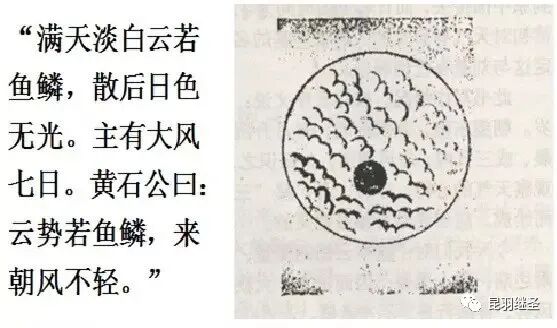 “满天淡白云若
鱼鳞，散后日色
无光。主有大风
七日。黄石公曰：
云势若鱼鳞，来
朝风不轻。”
昆羽继圣